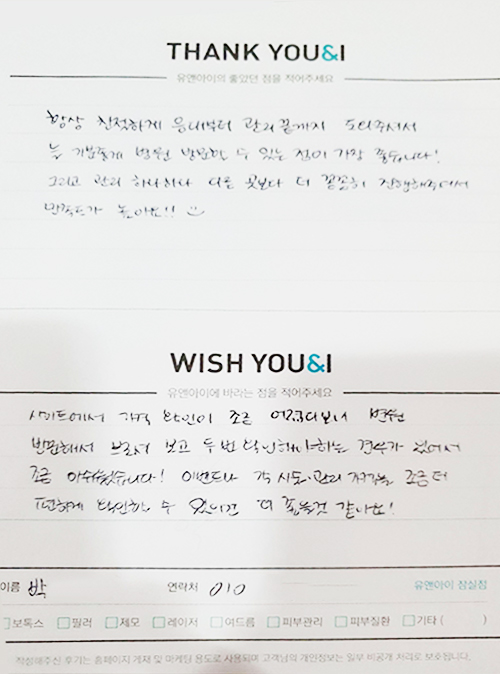 THANK YOU&I
유앤아이의 좋았던 점을 적어주세요
항상 친절하게 응대부터 관리 끝까지 도와주셔서
늘 기분좋게 병원 방문할 수 있는 점이 가장 좋습니다!
그리고 관리 하나하나 다른 곳보다 더 꼼꼼히 진행해주셔서
만족도가 높아요!!
WISH YOU&I
유앤아이에 바라는 점을 적어주세요
사이트에서 가격 확인이 조금 어렵다보니 병원
방문해서 브로셔 보고 두번 확인해야하는 경우가 있어서
조금 아쉬웠습니다! 이벤트나 각 시도·관리 가격을 조금 더
편하게 확인할 수 있으면 더 좋을것 같아요!
이름 박 연락처 010 유앤아이 잠실점
보톡스 필러 제모 레이저 여드름 피부관리 피부질환 기타( )
작성해주신 후기는 홈페이지 게재 및 마케팅 용도로 사용되며 고객님의 개인정보는 일부 비공개 처리로 보호됩니다.